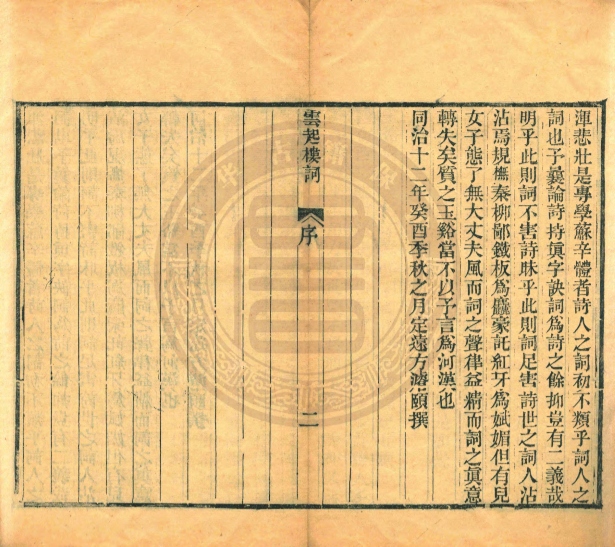 渾悲壯是專學蘇辛體者詩人之詞初不類乎詞人之
詞也予曩論詩持眞字訣詞爲詩之餘抑豈有二義哉
明乎此則詞不害詩昧乎此則詞足害詩世之詞人沾
沾焉規橅秦柳鄙鐵板爲麤豪託紅牙爲斌媚但有兒
女子態了無大丈夫風而詞之聲律益精而詞之眞意
轉失矣質之玉谿當不以予言爲河漢也
同治十二年癸酉季秋之月定遠方濬頤撰
雲起樓詞
序
二